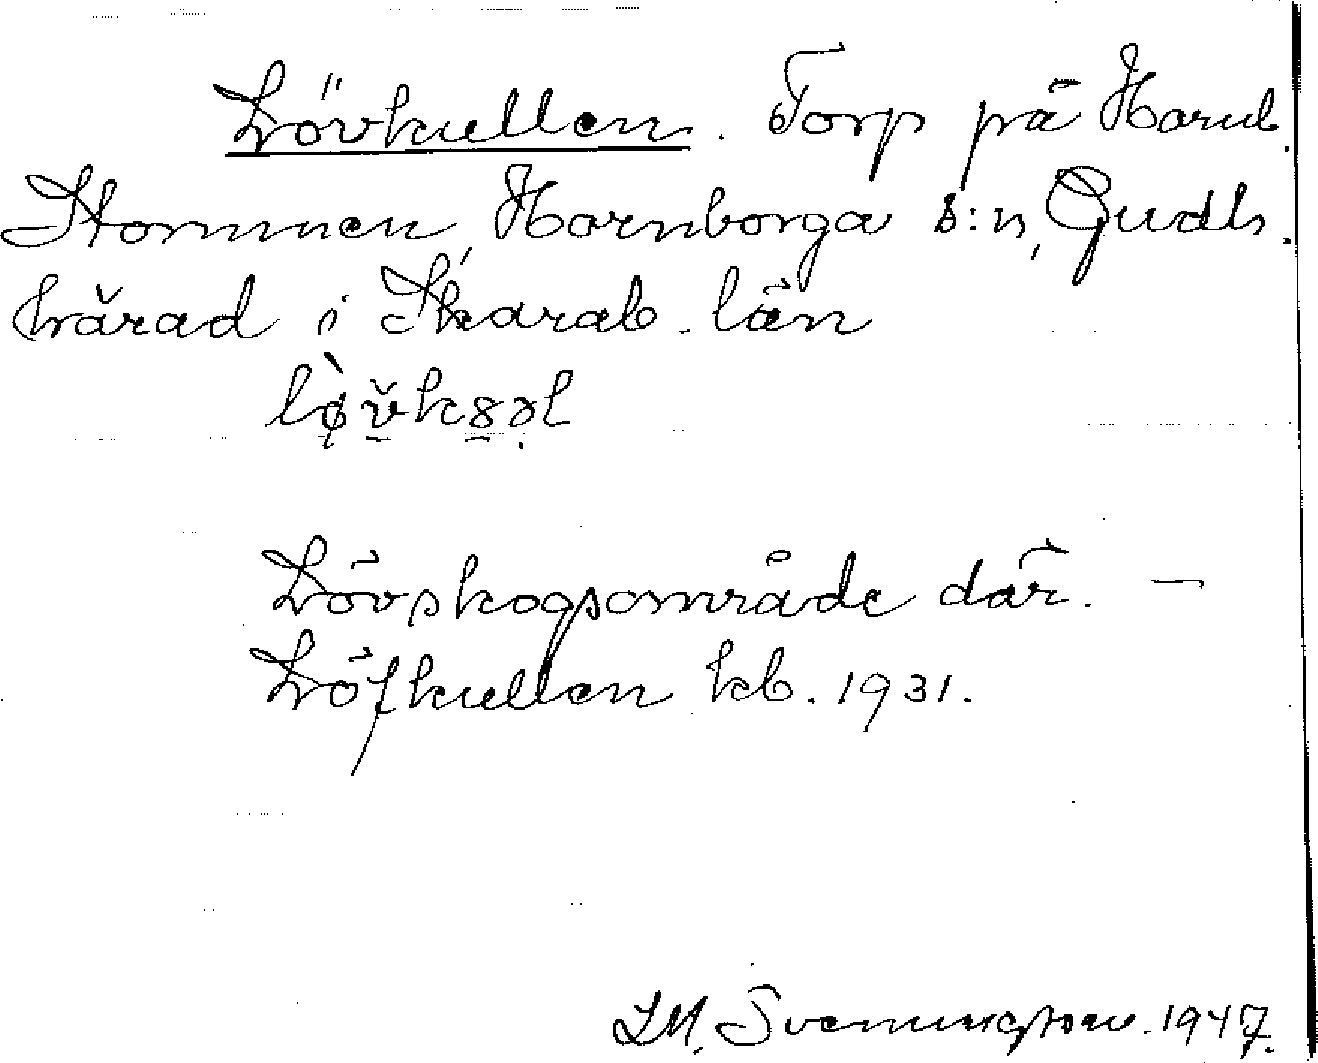 Lövkullen. Torp på Hornb.
Stommen, Hornborga s:n, Gudh.
härad i Skarab. län
Lövskogsområde där. —
Löfkullen kb. 1931.
Svenungsson. 1947.